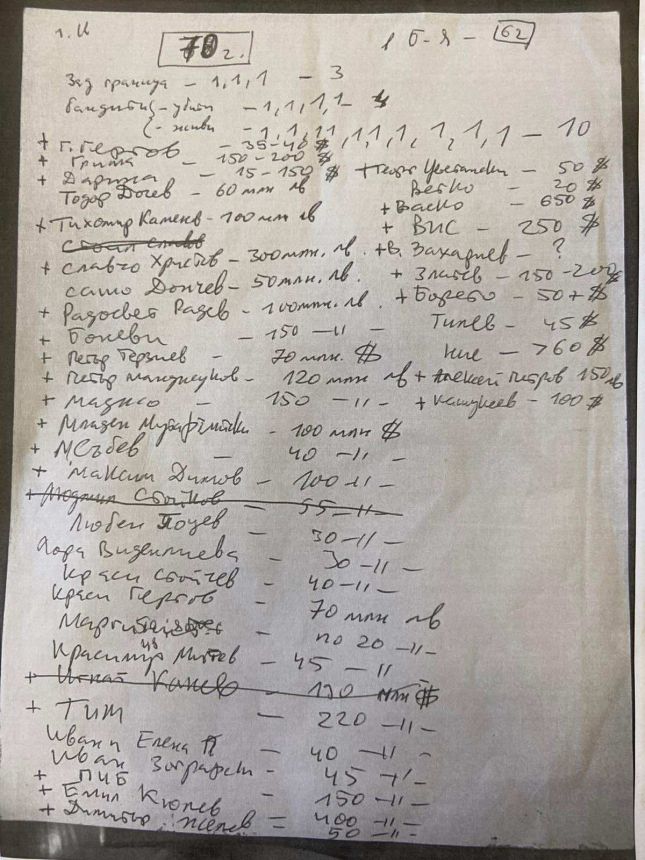 г. К
70 г.
1 Б-Я - 62
Зад граница - 1,1,1 - 3
бандити {- убити - 1,1,1,1 - 4
{- живи - 1,1,1,1,1,1,1,1,1,1 - 10
+ Г. Гергов - 35-40 $
+ Гриша - 150-200 $
+ Дарина - 15-150 $
Тодор Дочев - 60 млн лв
+ Тихомир Каменов - 100 млн лв
+ Славчо Христов - 300 млн. лв.
Сашо Дончев - 50 млн. лв.
+ Радосвет Радев - 100 млн. лв.
+ Боневи - 150 -"-
+ Петър Терзиев - 70 млн. $
+ Петър Манджуков - 120 млн лв
+ Маджо - 150 -"-
+ Младен Мутафчийски - 100 млн $
+ М Събев - 40 -"-
+ Максим Димов - 100 -"-
+ Людмил Стойков - 55 -"-
Любен - 30 -"-
Хора Виденлиева - 30 -"-
Краси Стойчев - 40 -"-
Краси Гергов - 70 млн лв
- по 20 -"-
Красимир - 45 -"-
+ Игнат Канев - 190 млн $
+ ТИМ - 220 -"-
Иван и Елена П - 40 -"-
Иван Зографски - 45 -"-
+ ПИБ - 150 -"-
+ Емил Кюлев - 400 -"-
+ Димитър Желев - 50 -"-
+ Георг Цветански - 50 $
Ветко - 20 $
+ Васко - 650 $
+ ВИС - 250 $
+ В. Захариев - ?
+ Златев - 150-200 $
+ Борето - 50 + $
Тилев - 45 $
Ние - >60 $
+ Алексей Петров 150 лв
+ - 100 $